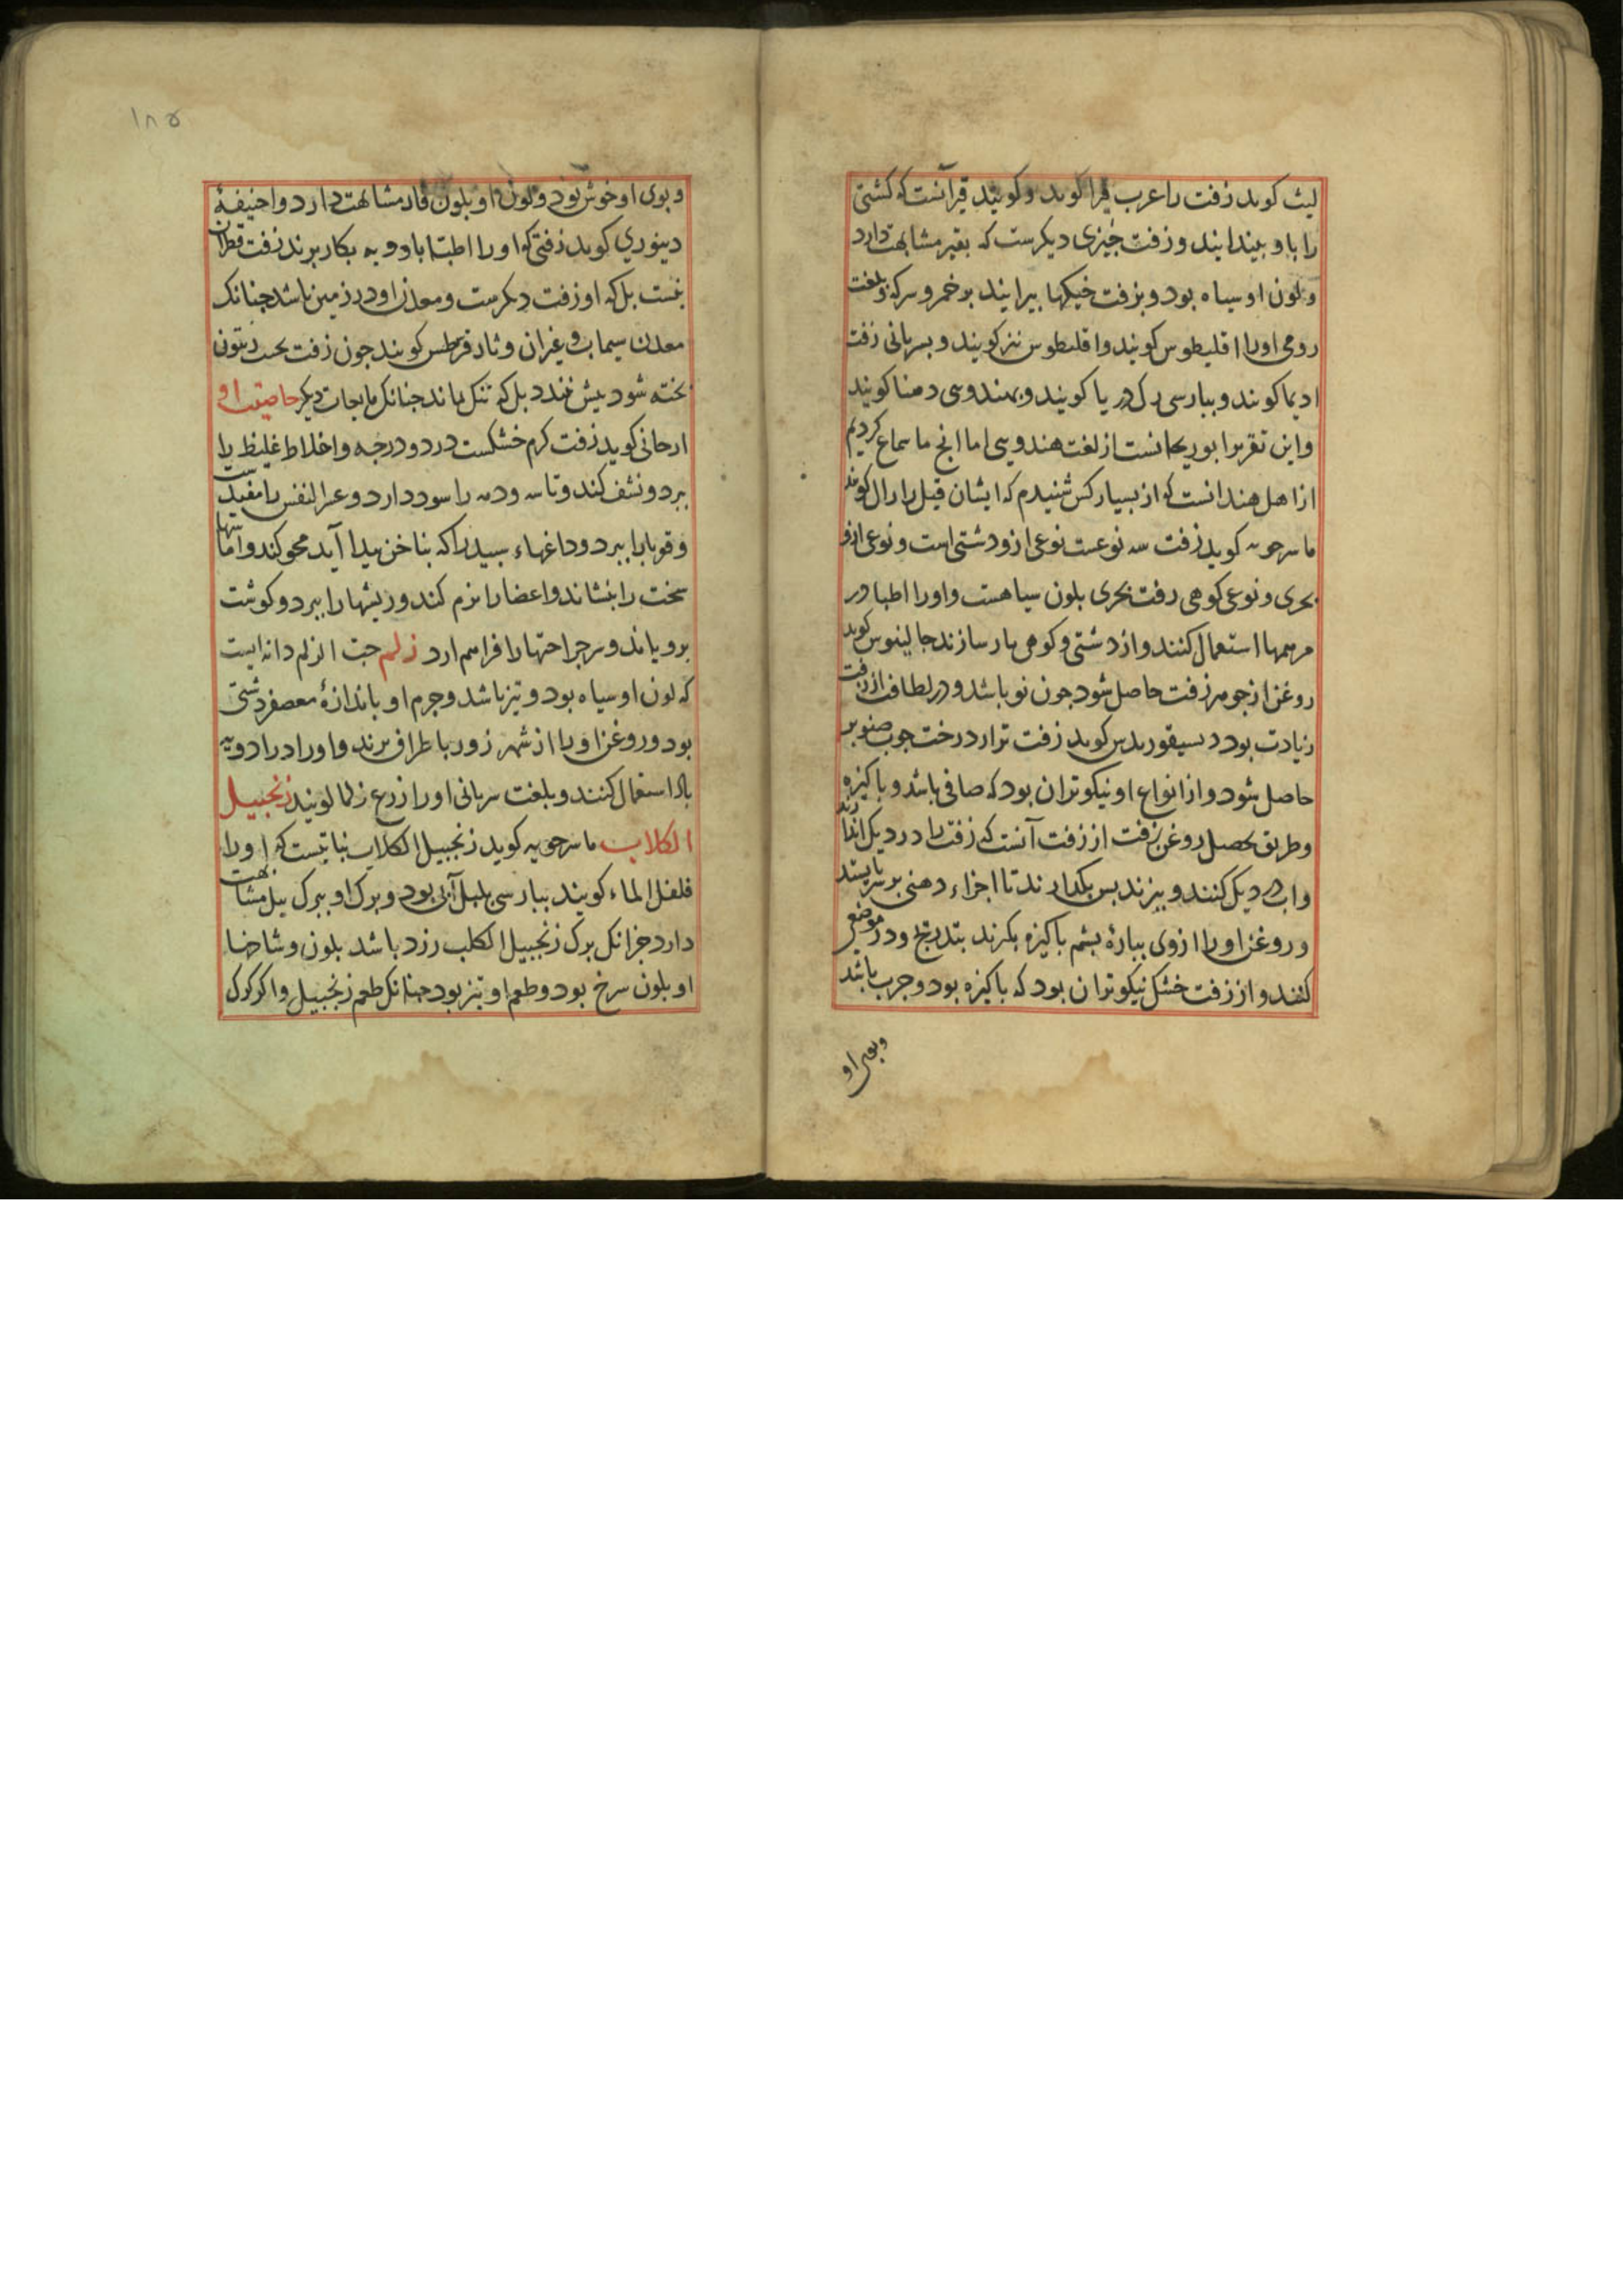 لیث کوید زفت را عرب قیر کوید و کویند قیر آنست که کشتی
را باو بیندایند و زفت چیزی دیکرست که بقیر مشابهت دارد
ولون او سیاه بود و بزفت خیکها بیرایند بر خمر و سرکه و بلغت
رومی اورا اقلیطوس کویند و اقلنطوس نیز کویند و بسریانی زفت
ادیما کویند و ببارسی رک دریا کویند و بهندوی دمنا کویند
واین تقریر ابو ریحانست از لغت هندویی اما انچ ما سماع کردیم
از اهل هند انست که از بسیار کس شنیدم که ایشان قیل را رال کویند
ماسرجویه کوید زفت سه نوعست نوعی ازو دشتی است و نوعی ازو
بحری و نوعی کوهی زفت بحری بلون سیاهست و اورا اطبا در
مرهمها استعمال کنند و از دشتی و کوهی بار سازند جالینوس کوید
روغن از جوهر زفت حاصل شود جون نو باشد و در لطافت از زفت
زیادت بود دیسقوریدس کوید زفت تر از درخت جوب صنوبر
حاصل شود و از انواع او نیکوتر ان بود که صافی باشد و باکیزه
وطریق تحصیل روغن زفت از زفت آنست که زفت را در دیک اندازند
واب در دیک کنند و بپزند بس بکذارند تا اجزاء دهنی بر سر بایستد
و روغن اورا ازوی بپارهٔ بشم باکیزه بکیرند بتدریج و در موضعی
کنند و از زفت خشک نیکوتر ان بود که باکیزه بود و جرب باشد
وبوی او
۱۸۵
وبوی او خوش بود ولون او بلون قار مشابهت دارد و ابو حنیفهٔ
دینوری کوید زفتی که اورا اطبا بادویه بکار برند زفت قطران
نیست بل که او زفت دیکرست و معدن او در زمین باشد جنانک
معدن سیماب و غیر ان و ثاد فرطس کویند جون زفت تحت زیتون
بخته شود بیش نبندد بل که تنک بماند جنانک مایعات دیکر خاصیت او
ارجانی کوید زفت کرم خشکست در دو درجه و اخلاط غلیظ را
ببرد و نشف کند و تاسه و دمه را سود دارد و عسر النفس را مفیدست
وقوبا را ببرد و داغهاء سبید را که بناخن پیدا آید محو کند و آماسها
سخت را بنشاند و اعضا را نرم کند و ریشها را ببرد و کوشت
برویاند و سر جراحتها را فراهم ارد زلم حب الزلم دانه ایست
که لون او سیاه بود و تیز باشد و جرم او باندازهٔ معصفر دشتی
بود و روغن اورا از شهر زور باطراف برند و اورا در ادویه
باه استعمال کنند و بلغت سریانی اورا زرع زلما کویند زنجبیل
الکلاب ماسرجویه کوید زنجبیل الکلاب نباتیست که اورا
فلفل الماء کویند ببارسی بلبل آبی بود و برک او ببرک بید مشابهت
دارد جز انک برک زنجبیل الکلب زرد باشد بلون و شاخها
او بلون سرخ بود و طعم او تیز بود جنانک طعم زنجبیل و اکر کوک